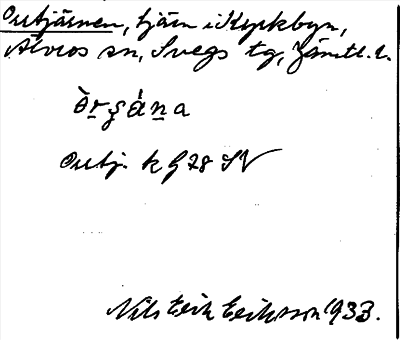 Örtjärnen, tjärn i Kyrkbyn,
Älvros sn, Svegs tg, Jämtl. l.
ö̀rʂána
Örtj. k G 28 SV
Nils Erik Eriksson 1933.